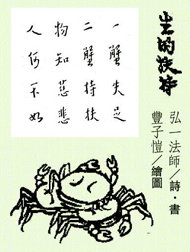 生的扶持
弘一法師／詩・書
豐子愷／繪圖
一蟹失足
二蟹持扶
物知慈悲
人何不如